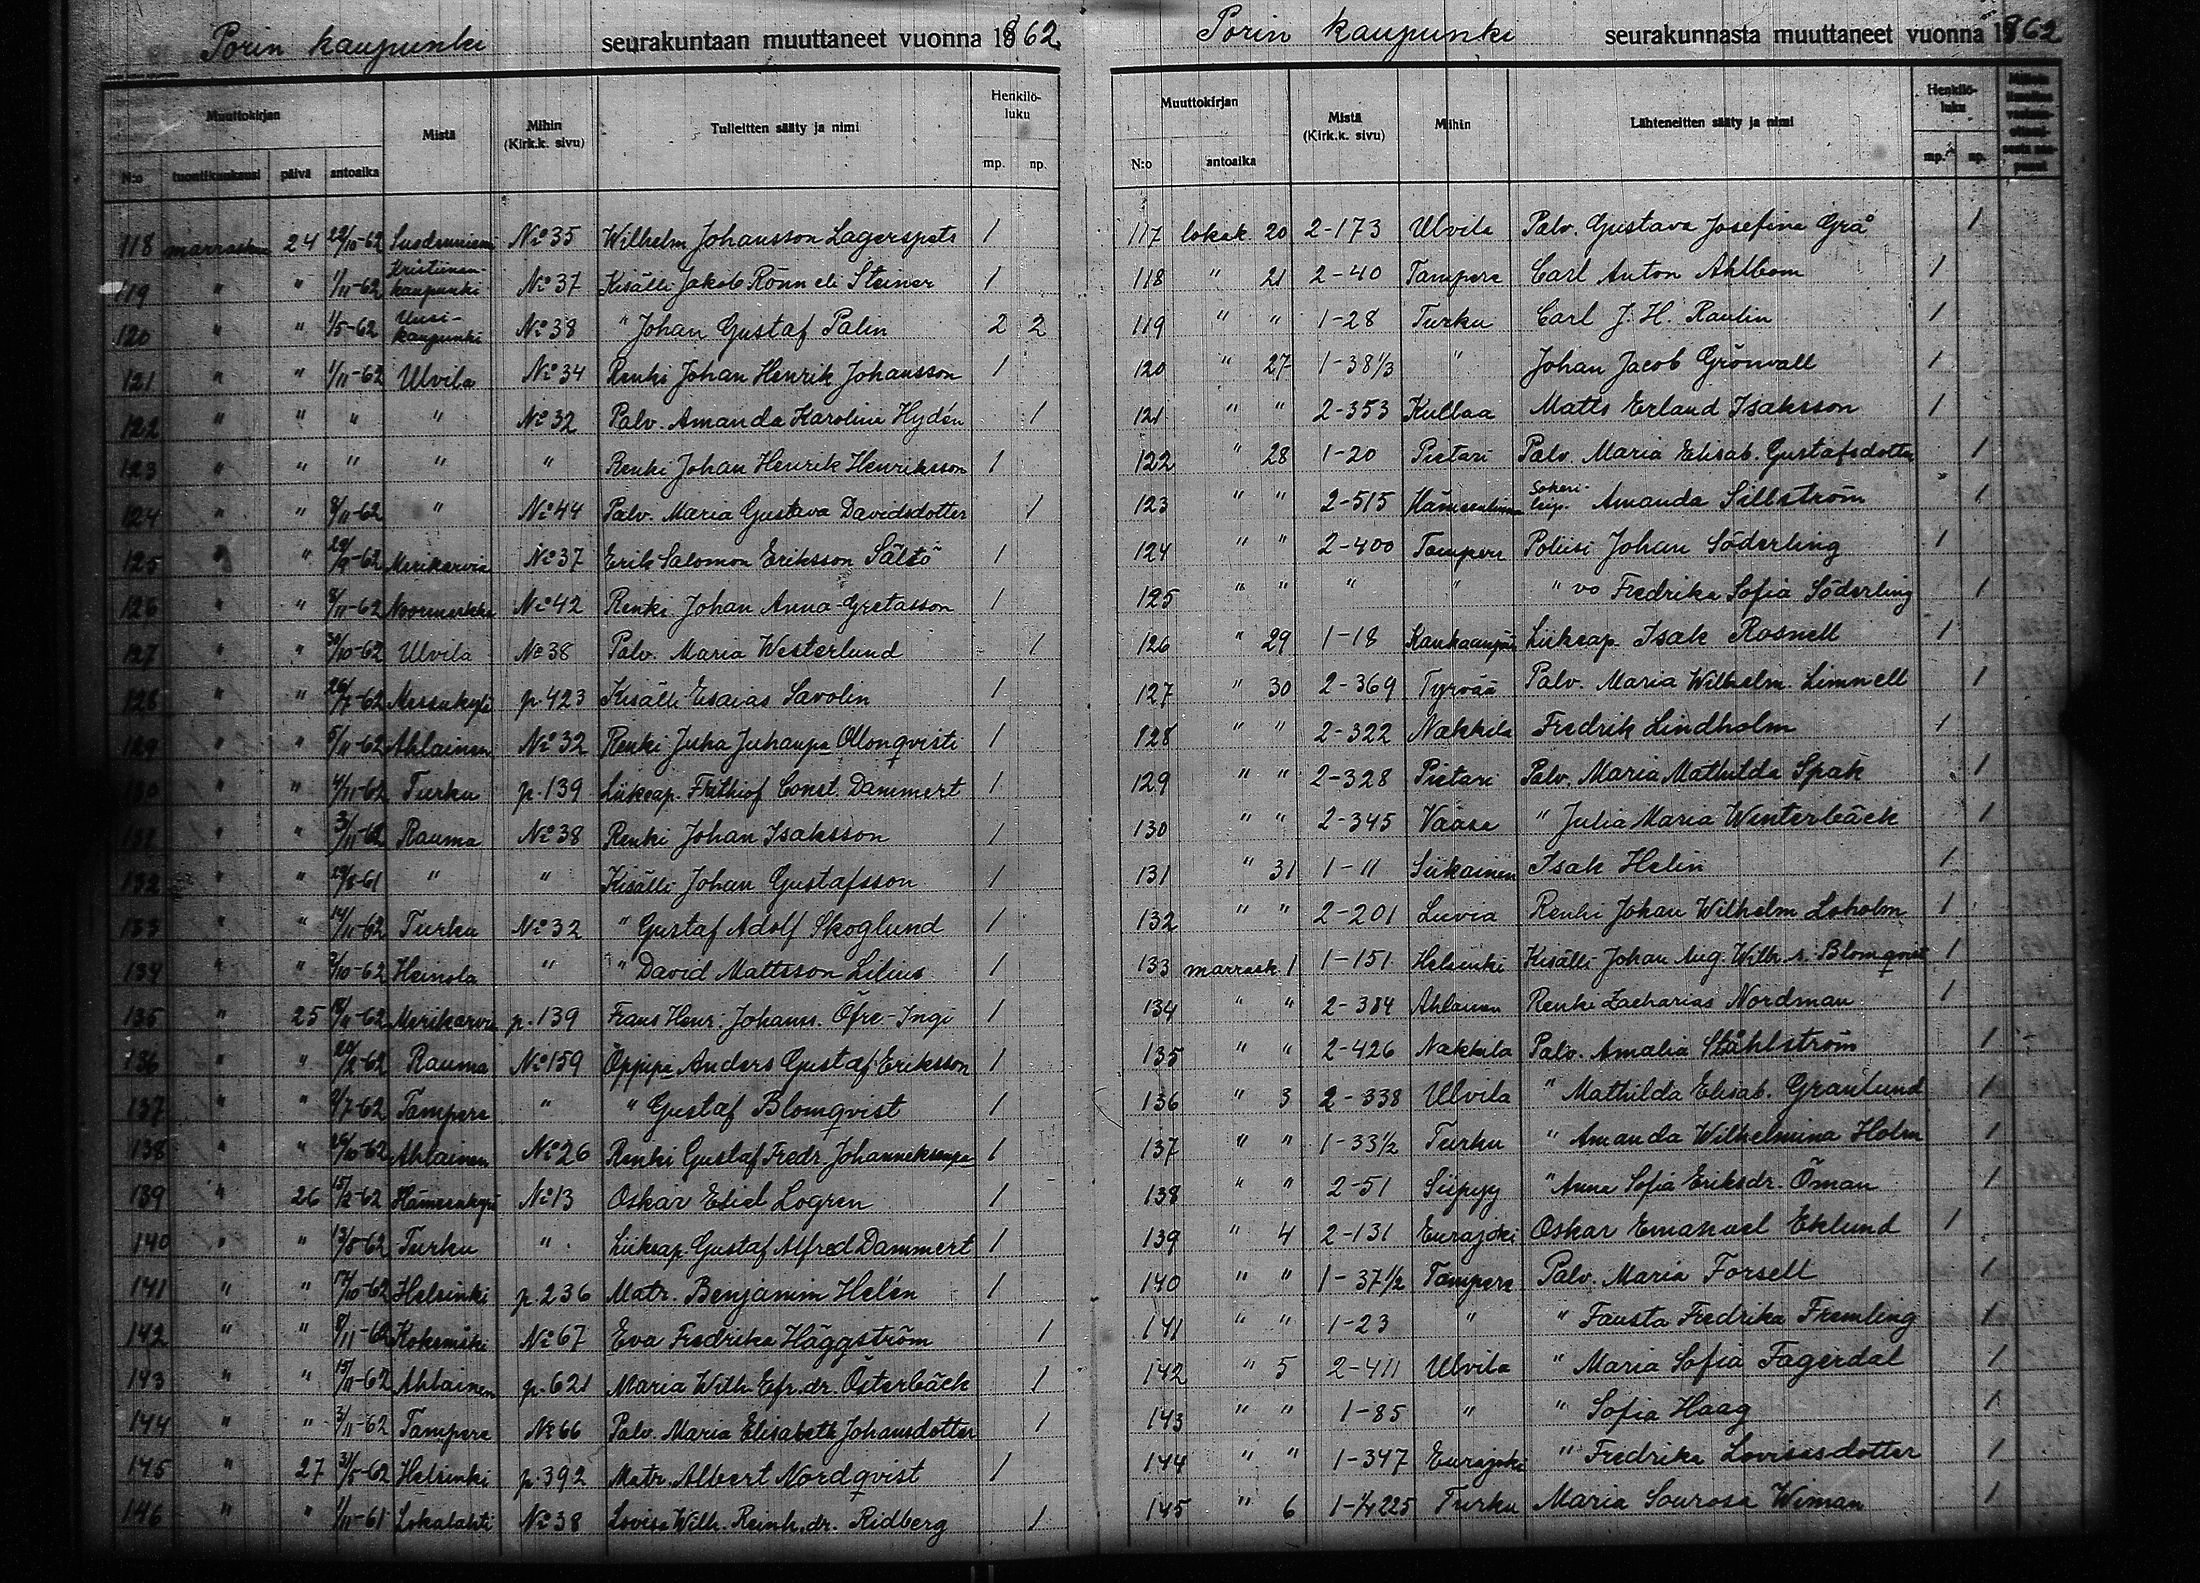 Porin kaupunki seurakuntaan muuttaneet vuonna 1862
Muuttokirjan Mistä Mihin (Kirk.k. sivu) Tulleitten sääty ja nimi Henkilö-luku
N:o tuontikuukausi päivä antoaika mp. np.
118 marrask 24 29/10-62 Suodenniemi No 35 Wilhelm Johansson Lagerspets 1
119 " " 1/11-62 Kristiinan-kaupunki No 37 Kisälli Jakob Rönn eli Steiner 1
120 " " 1/5-62 Uusi-kaupunki No 38 " Johan Gustaf Palin 2 2
121 " " 1/11-62 Ulvila No 34 Renki Johan Henrik Johansson 1
122 " " " " No 32 Palv. Amanda Karolina Hydén 1
123 " " " " " Renki Johan Henrik Henriksson 1
124 " " 8/11-62 " No 44 Palv. Maria Gustava Davidsdotter 1
125 " " 29/9-62 Merikarvia No 37 Erik Salomon Eriksson Sältö 1
126 " " 8/11-62 Noormarkku No 42 Renki Johan Anna-Gretasson 1
127 " " 30/10-62 Ulvila No 38 Palv. Maria Westerlund 1
128 " " 26/7-62 Messukylä p. 423 Kisälli Esaias Savolin 1
129 " " 5/11-62 Ahlainen No 32 Renki Juha Juhanpa Ollonqvisti 1
130 " " 4/11-62 Turku p. 139 Liikeap. Frithiof Const. Dammert 1
131 " " 3/11-62 Rauma No 38 Renki Johan Isaksson 1
132 " " 29/8-61 " " Kisälli Johan Gustafsson 1
133 " " 14/11-62 Turku No 32 " Gustaf Adolf Skoglund 1
134 " " 2/10-62 Heinola " " David Mattsson Lilius 1
135 " 25 18/11-62 Merikarvia p. 139 Frans Henr. Johanss. Öfre-Ingi 1
136 " " 20/2-62 Rauma No 159 Oppipa Anders Gustaf Eriksson 1
137 " " 2/7-62 Tampere " " Gustaf Blomqvist 1
138 " " 26/10-62 Ahlainen No 26 Renki Gustaf Fredr. Johanneksenpa 1
139 " 26 15/2-62 Hämeenkyrö No 13 Oskar Esiel Logren 1
140 " " 13/8-62 Turku " Liikeap. Gustaf Alfred Dammert 1
141 " " 14/10-62 Helsinki p. 236 Matr. Benjamin Helén 1
142 " " 8/11-62 Kokemäki No 67 Eva Fredrika Häggström 1
143 " " 15/11-62 Ahlainen p. 621 Maria Wilh. Efr. dr. Österbäck 1
144 " " 3/11-62 Tampere No 66 Palv. Maria Elisabeth Johansdotter 1
145 " 27 31/5-62 Helsinki p. 392 Matr. Albert Nordqvist 1
146 " " 1/11-61 Lokalahti No 38 Lovisa Wilh. Reinh. dr. Ridberg 1
Porin kaupunki seurakunnasta muuttaneet vuonna 1862
Muuttokirjan Mistä (Kirk.k. sivu) Mihin Lähteneitten sääty ja nimi Henkilö-luku
N:o antoaika mp. np.
117 lokak. 20 2-173 Ulvila Palv. Gustava Josefina Grå 1
118 " 21 2-40 Tampere Carl Anton Ahlbom 1
119 " " 1-28 Turku Carl J. H. Raulin 1
120 " 27 1-38 1/3 " Johan Jacob Grönvall 1
121 " " 2-353 Kullaa Matts Erland Isaksson 1
122 " 28 1-20 Pietari Palv. Maria Elisab. Gustafsdotter 1
123 " " 2-515 Hämeenlinna Sokeri-leip. Amanda Sillström 1
124 " " 2-400 Tampere Poliisi Johan Söderling 1
125 " " " " " vo Fredrika Sofia Söderling 1
126 " 29 1-18 Kankaanpää Liikeap. Isak Rosnell 1
127 " 30 2-369 Tyrvää Palv. Maria Wilhelm. Limnell 1
128 " " 2-322 Nakkila Fredrik Lindholm 1
129 " " 2-328 Pietari Palv. Maria Mathilda Spak 1
130 " " 2-345 Vaasa " Julia Maria Winterbäck 1
131 " 31 1-11 Siikainen Isak Helin 1
132 " " 2-201 Luvia Renki Johan Wilhelm Loholm 1
133 marrask 1 1-151 Helsinki Kisälli Johan Aug. Wilh. Blomqvist 1
134 " " 2-384 Ahlainen Renki Zacharias Nordman 1
135 " " 2-426 Nakkila Palv. Amalia Ståhlström 1
136 " 3 2-338 Ulvila " Mathilda Elisab. Granlund 1
137 " " 1-33 1/2 Turku " Amanda Wilhelmina Holm 1
138 " " 2-51 Siipyy " Anna Sofia Eriksdr. Öman 1
139 " 4 2-131 Eurajoki Oskar Emanuel Eklund 1
140 " " 1-37 1/2 Tampere Palv. Maria Forsell 1
141 " " 1-23 " " Fausta Fredrika Fremling 1
142 " 5 2-411 Ulvila " Maria Sofia Fagerdal 1
143 " " 1-85 " " Sofia Haag 1
144 " " 1-347 Eurajoki " Fredrika Lovisasdotter 1
145 " 6 1-1/4 225 Turku Maria Sourosa Wiman 1